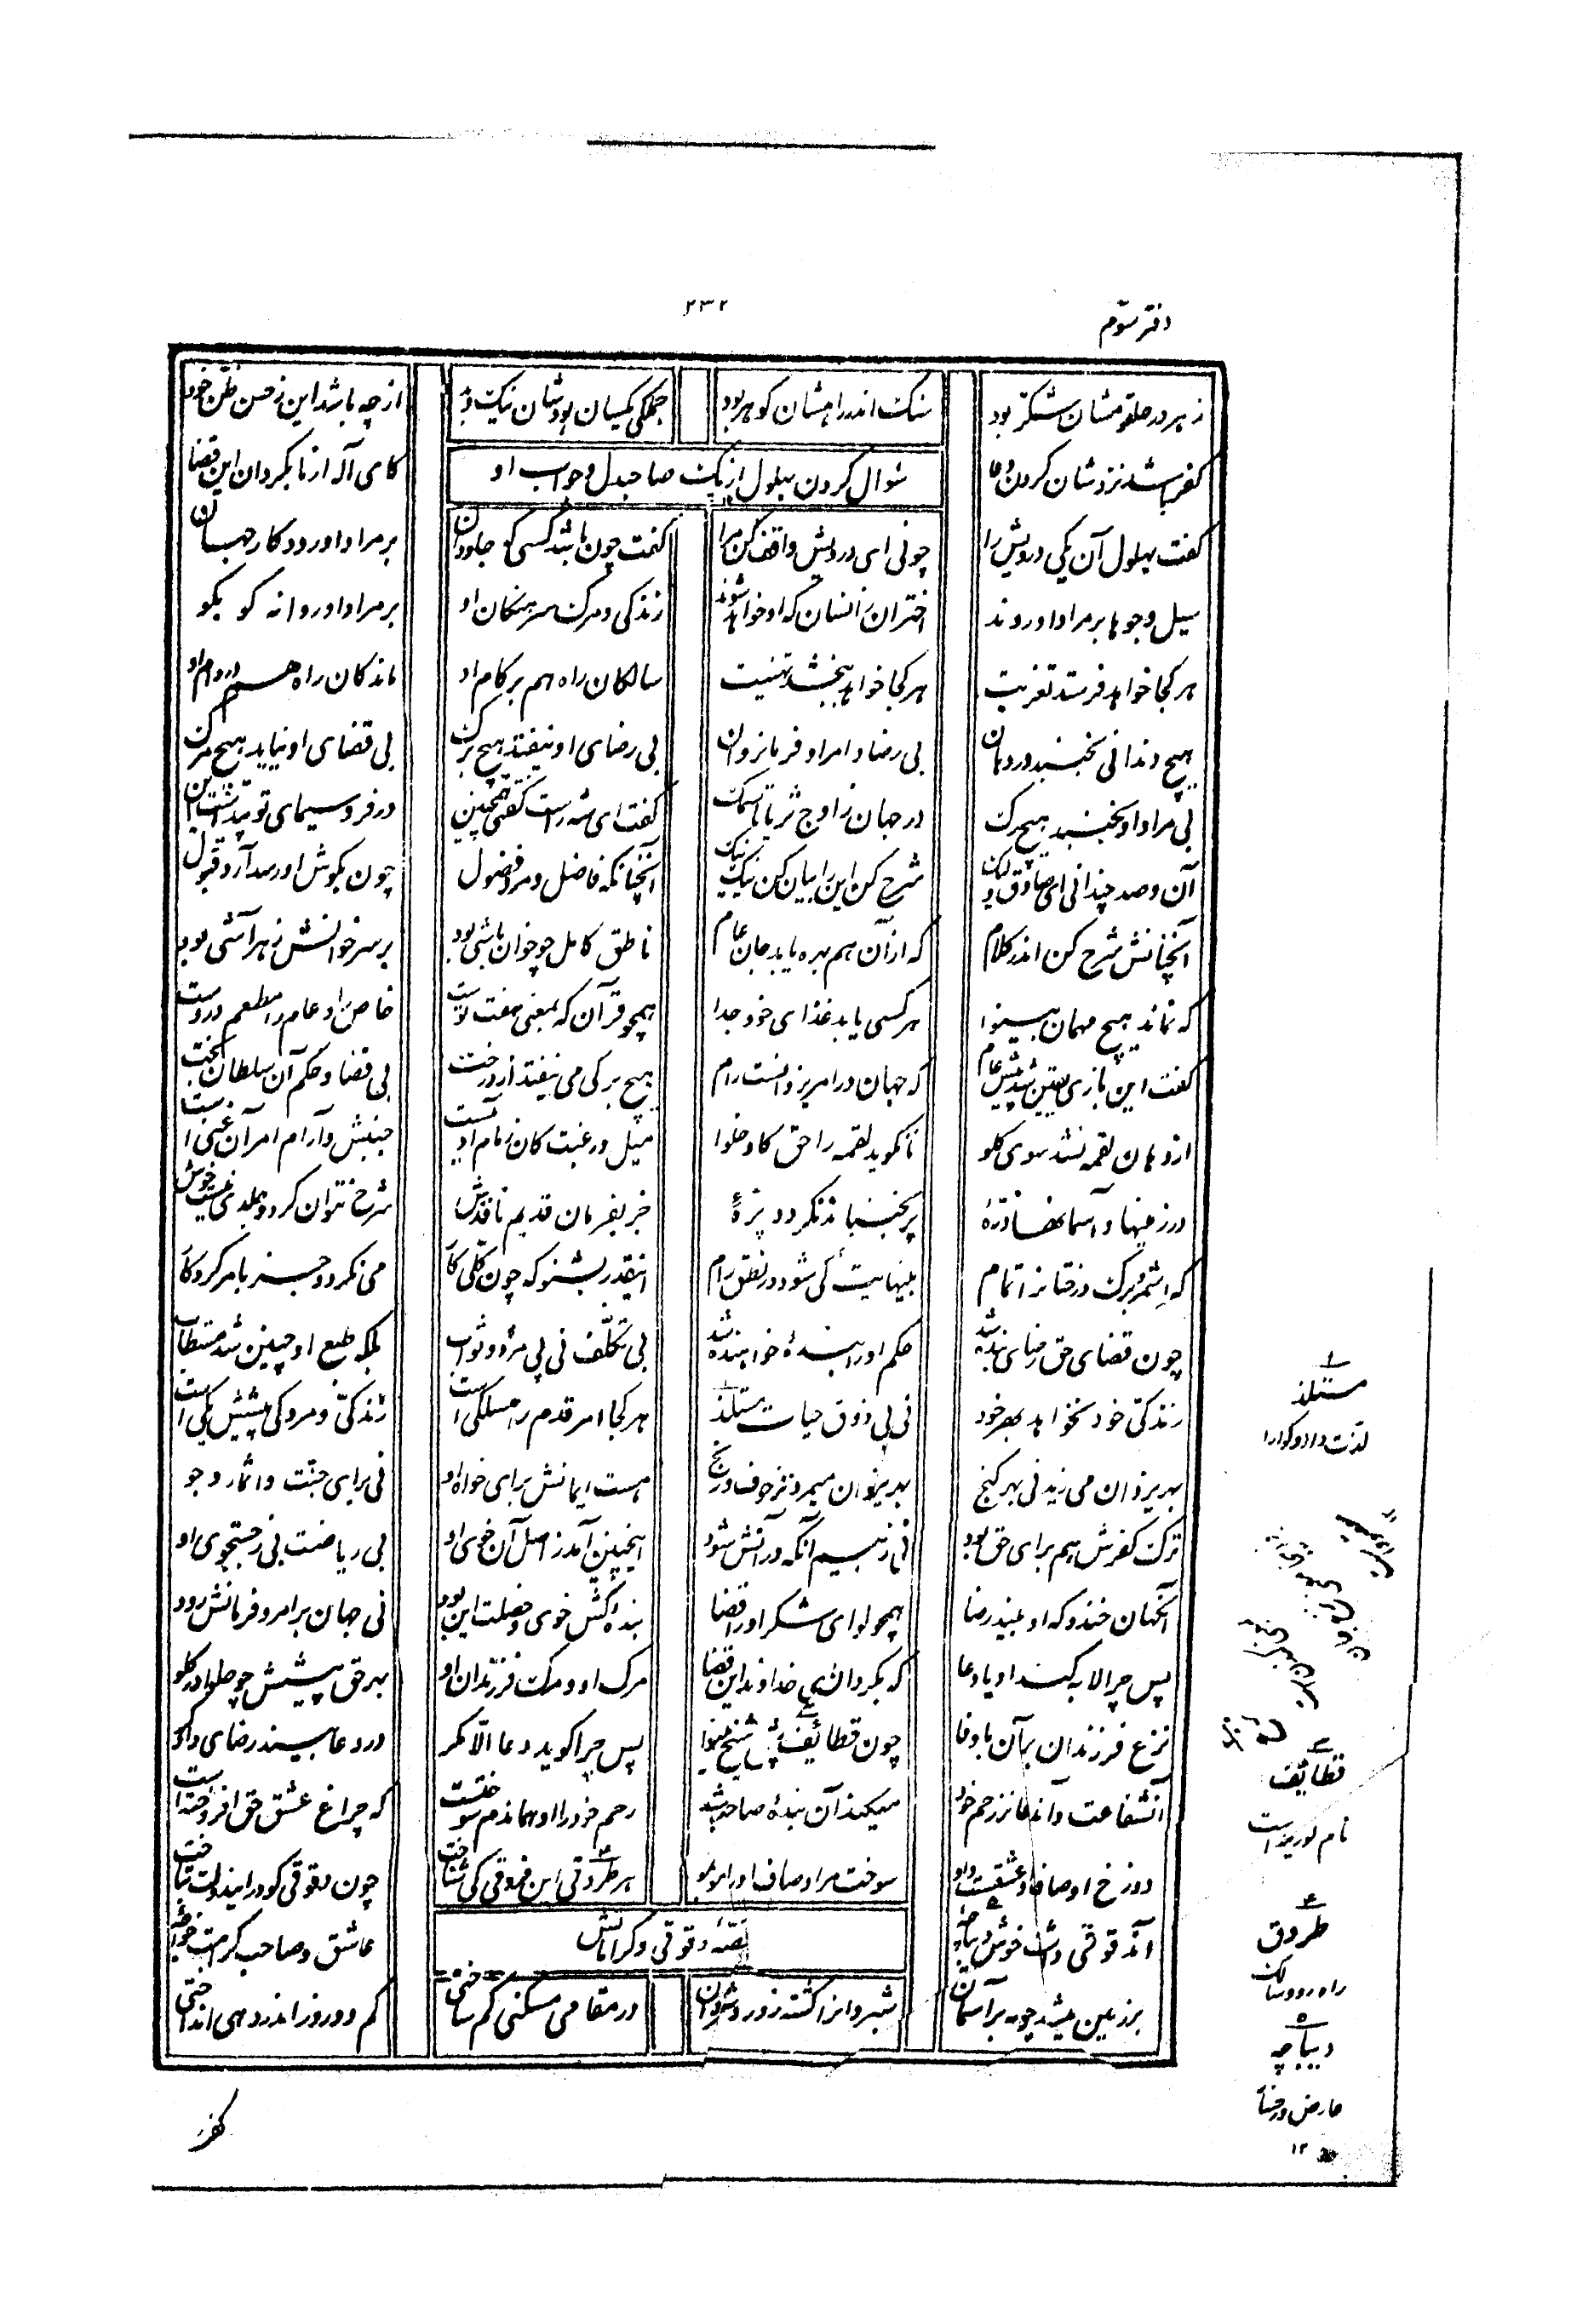 دفتر سوّم
۲۳۲
زهر در حلقومشان شکّر بود سنک اندر راهشان کوهر بود جملکی یکسان بودشان نیک و بد از چه باشد این ز حسن ظنّ خود
کفر باشد نزدشان کردن دعا کای آله از ما بکردان این قضا
سؤال کردن بهلول از یک صاحبدل و جواب او
کفت بهلول آن یکی درویش را چونی ای درویش واقف کن مرا کفت چون باشد کسی که جاودان بر مراد او رود کار جهان
سیل و جوها بر مراد او روند اختران زانسان که او خواهد شوند زندکی و مرک سرهنکان او بر مراد او روانه کو بکو
هر کجا خواهد فرستد تعزیت هر کجا خواهد ببخشد تهنیت سالکان راه هم بر کام او ماندکان راه هم در دام او
هیچ دندانی نخنبد در دهان بی رضا و امر او فرمان روان بی رضای او نیفتد هیچ برک بی قضای او نیاید هیچ مرک
بی مراد او نجنبد هیچ رک در جهان ز اوج ثریا تا سمک کفت ای شه راست کفتی همچنین در فر و سیمای تو پیداست این
آن و صد چندانی ای صادق و لیک شرح کن این را بیان کن نیک نیک آنچنانکه فاضل و مرد فضول چون بکوش او رسد آرد قبول
آنچنانش شرح کن اندر کلام که از آن هم بهره یابد جان عام ناطق کامل چو خوان باشی بود بر سر خوانش ز هر آشی بود
که نماند هیچ مهمان بینوا هر کسی یابد غذای خود جدا همچو قرآن که بمعنی هفت توست خاص را و عام را مطعم دروست
کفت این باری یقین شد پیش عام که جهان در امر یزدانست رام هیچ برکی می نیفتد از درخت بی قضا و حکم آن سلطان بخت
از دهان لقمه نشد سوی کلو تا نکوید لقمه را حق کادخلوا میل و رغبت کان زمام آدمیست جنبش و آرام امر آن غنی است
در زمینها و آسمانها ذرّهٔ پر نجنباند نکردد پرّهٔ جز بفرمان قدیم نافذش شرح نتوان کرد و جلدی نیست خوش
که اشمرد برک درختان را تمام بینهایت کی شود در نطق رام اینقدر بشنو که چون کلّی کار می نکردد جز بامر کردکار
چون قضای حق رضای بنده شد حکم او را بندهٔ خواهنده شد بی تکلّف نی پی مزد و ثواب بلکه طبع او چنین شد مستطاب
زندکی خود نخواهد بهر خود نی پی ذوق حیات مستلذ هر کجا امر قدم را مسلکی است زندکی و مردکی پیشش یکی است
بهر یزدان می زید نی بهر کنج بهر یزدان میمرد نز خوف و رنج هست ایمانش برای خواه او نی برای جنّت و اثمار و جو
ترک کفرش هم برای حق بود نی ز بیم آنکه در آتش شود اینچنین آمد ز اصل آن خوی او بی ریاضت نی ز جستجوی او
آنکهان خندد که او بیند رضا همچو حلوای شکر او را قضا بنده کش خوی و خصلت این بود نی جهان بر امر و فرمانش رود
پس چرا لابه کند او یا دعا که بکردان ای خداوند این قضا مرک او و مرک فرزندان او بهر حق پیشش چو حلوا در کلو
نزع فرزندان بر آن باوفا چون قطائف پیش شیخ بینوا پس چرا کوید دعا الّا مکر در دعا بیند رضای دادکر
آنشفاعت و آندعا نز رحم خود میکند آن بندهٔ صاحب رشد رحم خود را او هماندم سوختست که چراغ عشق حق افروختست
دوزخ اوصاف او عشقست و او سوخت مر اوصاف او را مو بمو هر طروقی این فروقی کی شناخت چون دقوقی کو در این دولت بتاخت
قصّهٔ دقوقی و کراماتش
آندقوقی داشت خوش دیباجهٔ عاشق و صاحب کرامت خواجهٔ
بر زمین میشد چو مه بر آسمان شبروانرا کشته زو روشن روان در مقامی مسکنی کم ساختی کم دو روز اندر دهی انداختی
۱
مستلذ
لذت دار و کوارا
قطائف
نام لوزینه است
طروق
راه رو و سالک
۵
دیباچه
عارض و رخسار
۱۲
کفر